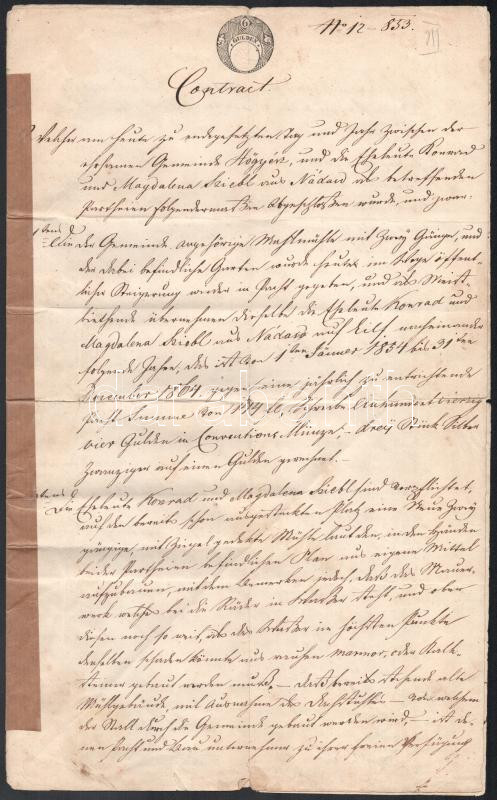 6
GULDEN
No 12 - 853.
Contract.
Welcher am heute zu endegesetzten Tag und Jahr zwischen der
ehrsamen Gemeinde Högyész, und die Eheleute Konrad
und Magdalena Kiebl aus Nádasd als betreffenden
Partheien folgendermaßen abgeschloßen wurde, und zwar:
1tens
der Gemeinde angehörige Mahlmühle mit Zwey Gänge, und
der dabei befindliche Garten wurde heute im Wege öffent-
licher Steigerung wieder in Pacht gegeben, und als Meist-
biethende übernehmen dieselbe die Eheleute Konrad und
Magdalena Kiebl aus Nádasd auf Eilf nacheinander
folgende Jahre, das ist von 1ten Jänner 1854 bis 31ten
December 1864 gegen eine jährlich zu entrichtende
Pacht Summe von 144 fl, schreibe Einhundert vierzig
vier Gulden in Conventions Münze, - drey Stück Silber
Zwanziger auf einen Gulden gerechnet. -
Die Eheleute Konrad und Magdalena Kiebl sind verpflichtet,
auf den bereits schon ausgesteckten Platz eine Neue Zwey
gängige, mit Ziegel gedeckte Mühle laut den, in den Händen
beider Partheien befindlichen Plan aus eigene Mittel
aufzubauen, mit dem Bemerken jedoch, daß das Mauer-
werk welches bei die Räder in Wasser steht, und ober
diesen noch so weit, als das Wasser im höchsten Punkte
denselben schaden könnte aus rauhen Marmor, oder Kalk-
steine gebaut werden muß. - Das bereits stehende alte
Mühlgebäude, mit Ausnahme des Dachstuhles - von welchem
der Stall durch die Gemeinde gebaut werden wird, - ist de-
nen Pacht und Bau unternehmer zu ihrer freien Verfügung